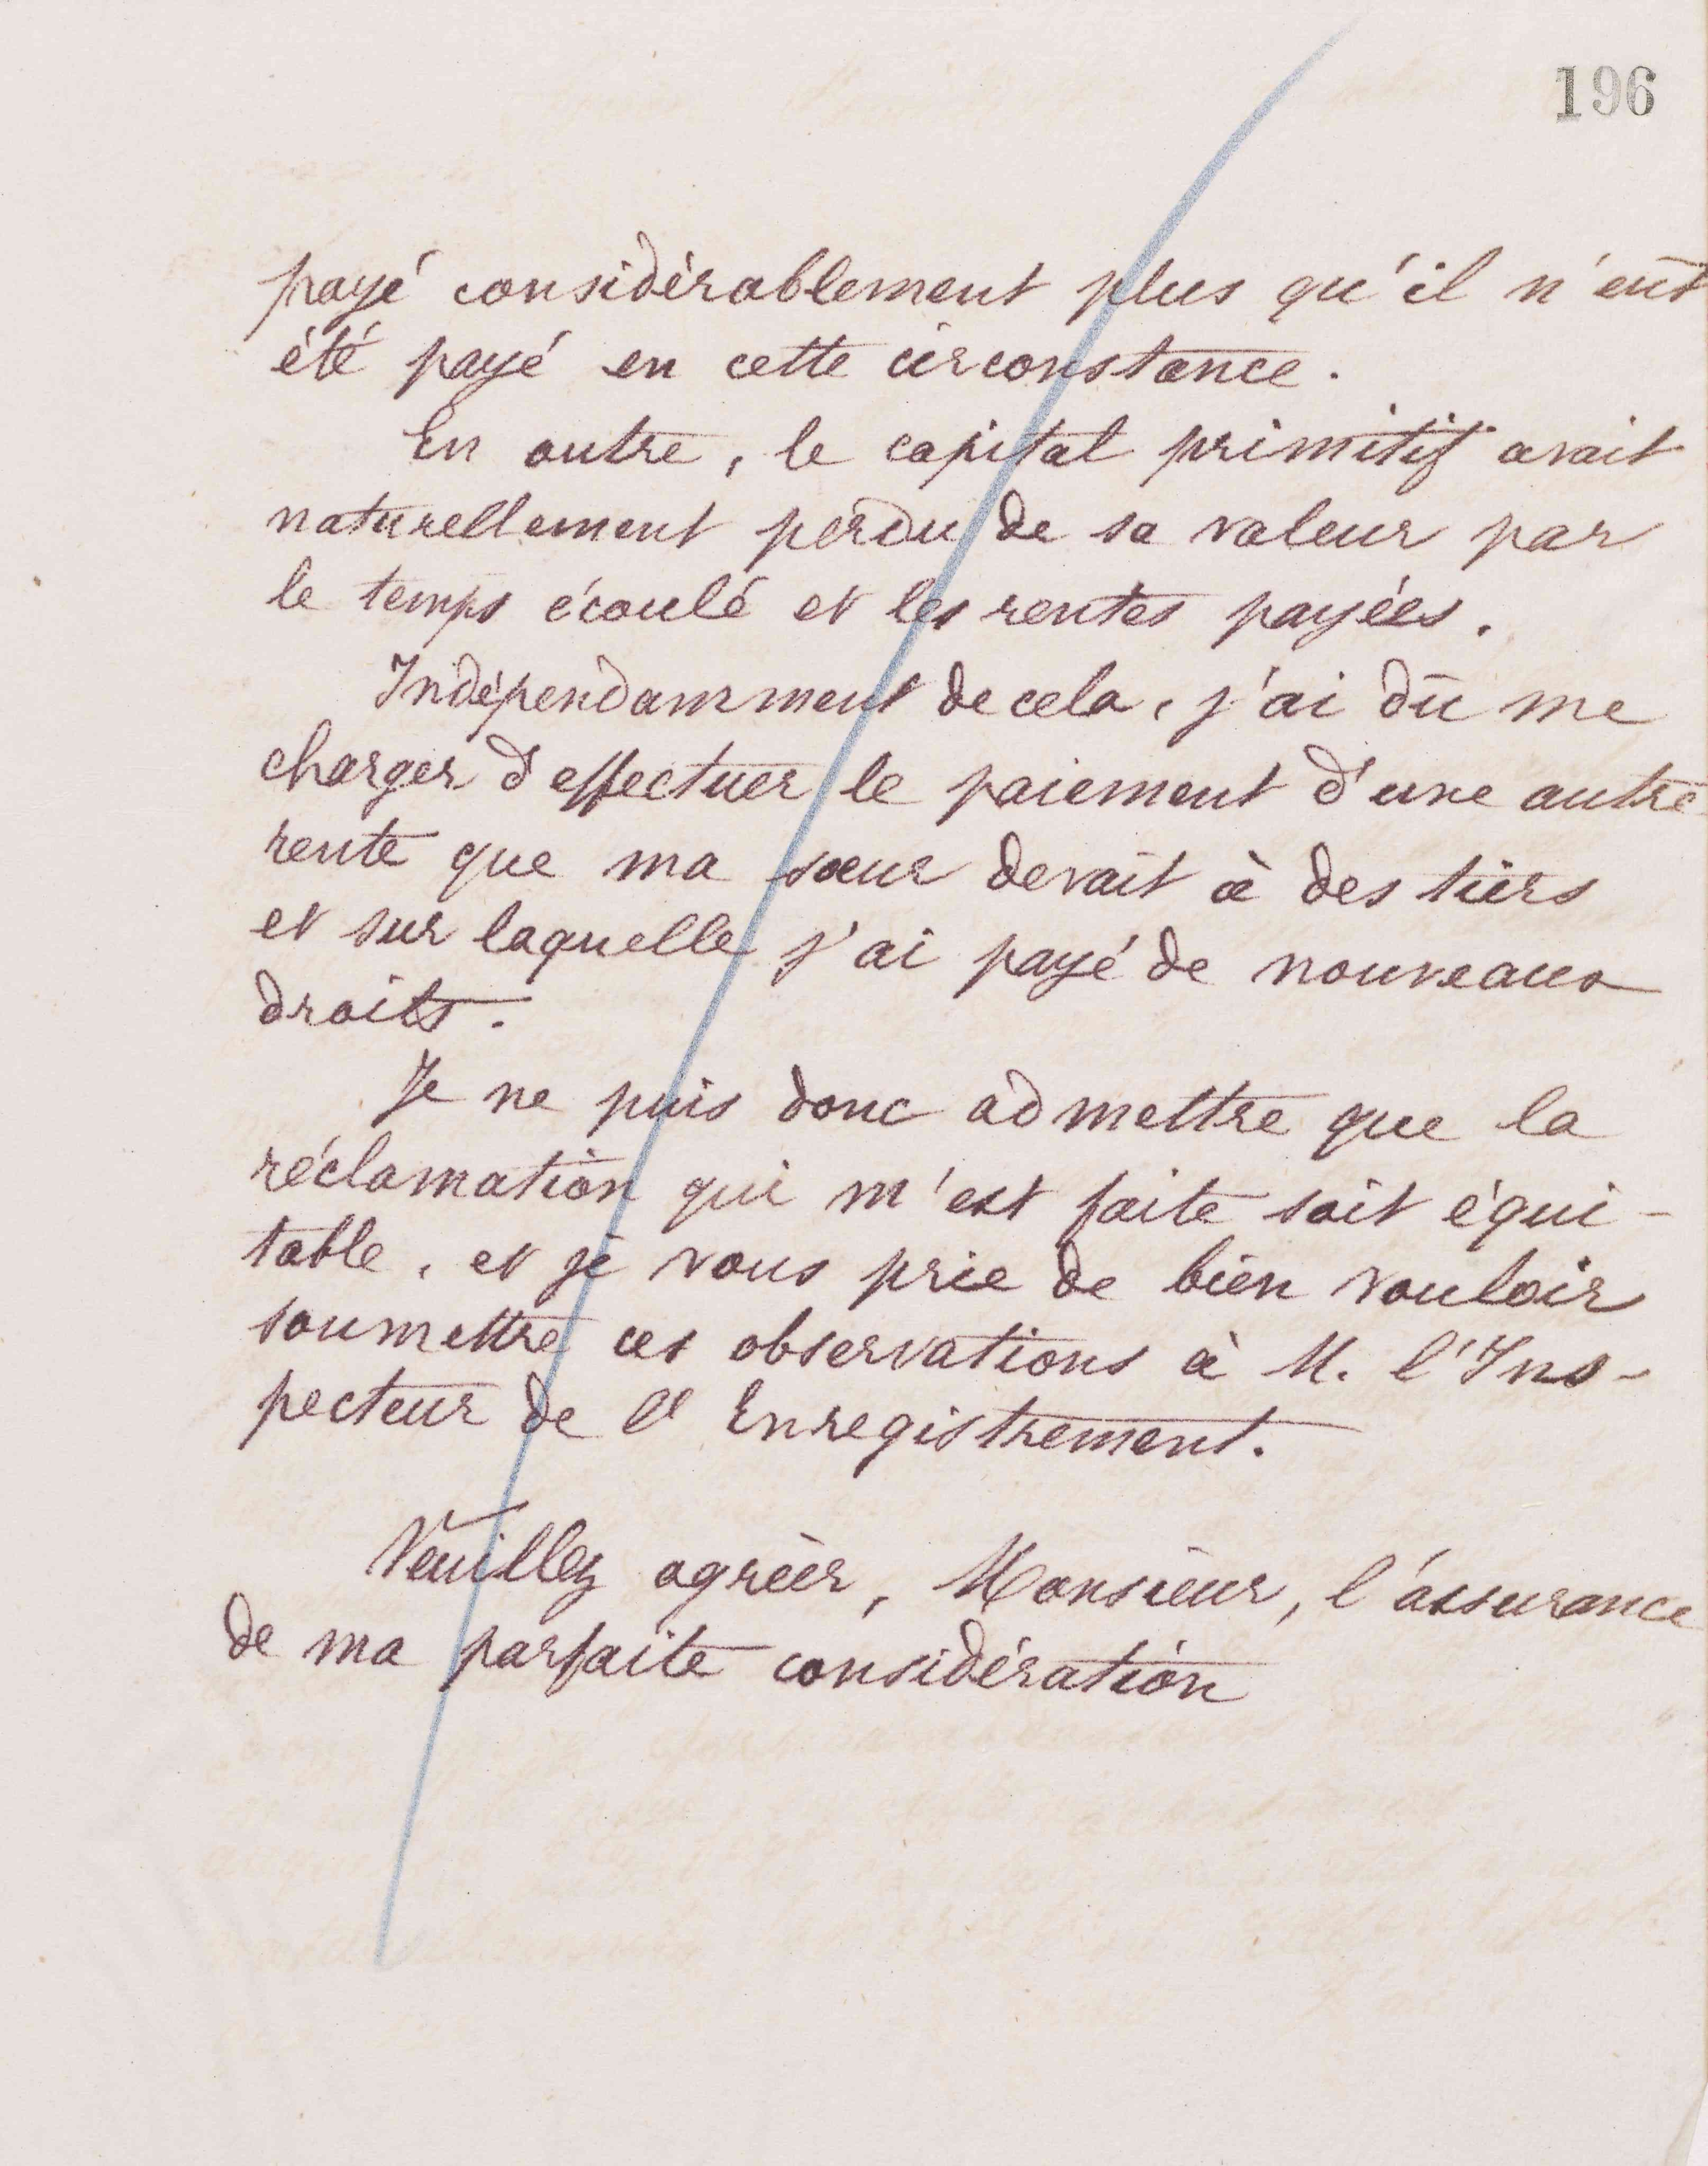 196
payé considérablement plus qu'il n'eût
été payé en cette circonstance.
En outre, le capital primitif avait
naturellement perdu de sa valeur par
le temps écoulé et les rentes payées.
Indépendamment de cela, j'ai dû me
charger d'effectuer le paiement d'une autre
rente que ma sœur devait à des tiers
et sur laquelle j'ai payé de nouveaux
droits.
Je ne puis donc admettre que la
réclamation qui m'est faite soit équi-
table, et je vous prie de bien vouloir
soumettre ces observations à M. l'Ins-
pecteur de l'Enregistrement.
Veuillez agréer, Monsieur, l'assurance
de ma parfaite considération